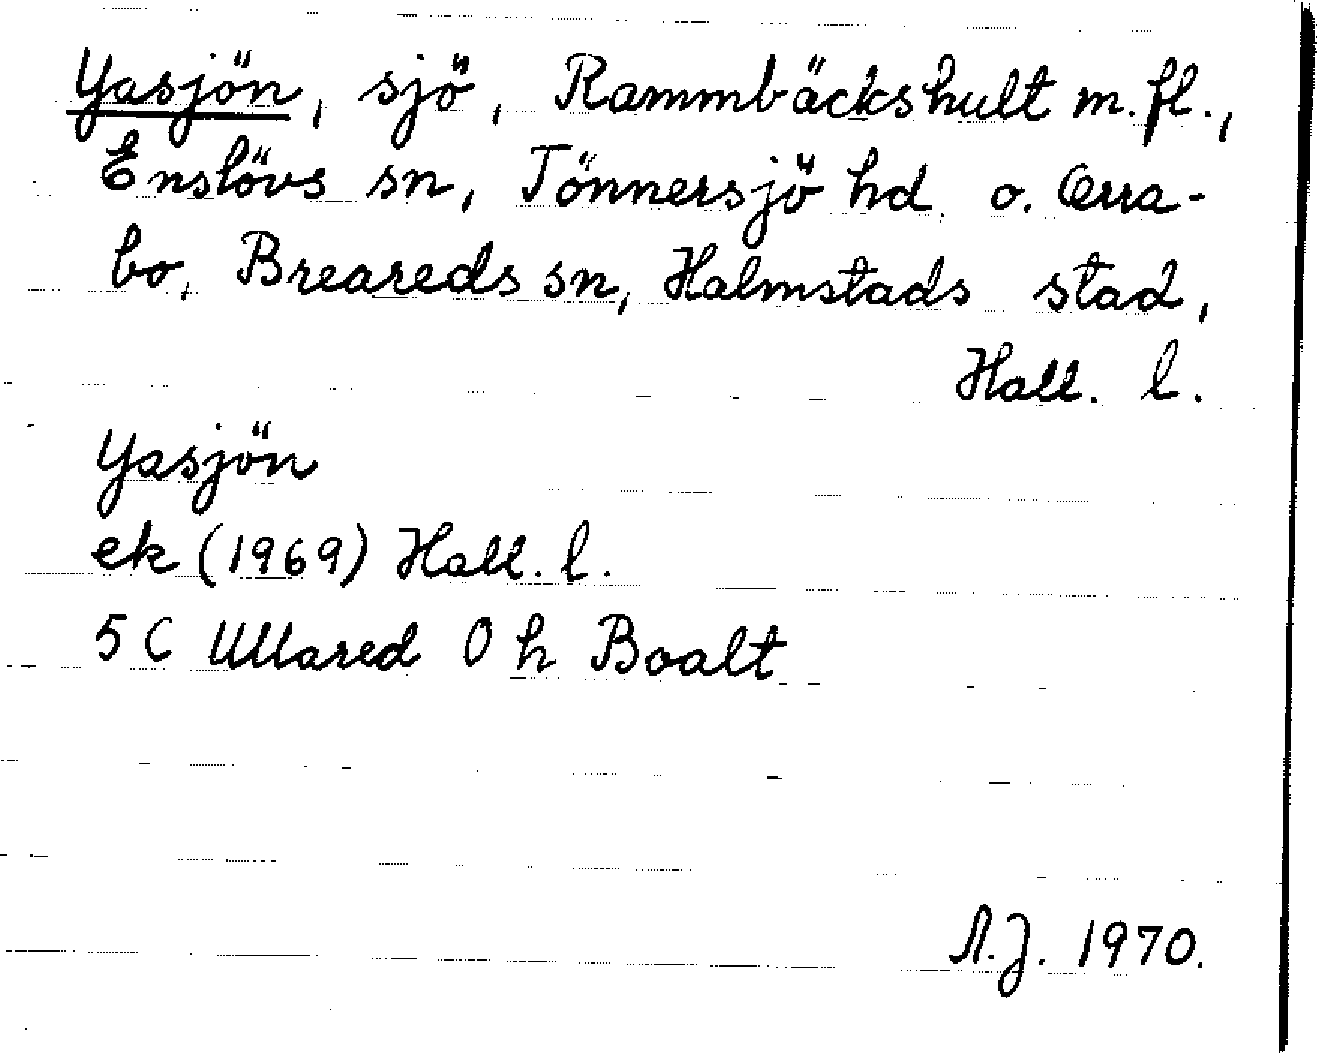 Yasjön, sjö, Rammbäckshult m.fl.,
Enslövs sn, Tönnersjö hd. o. Orra-
bo, Breareds sn, Halmstads stad,
Hall. l.
Yasjön
ek (1969) Hall. l.
5 C Ullared 0 h Boalt
A.J. 1970.